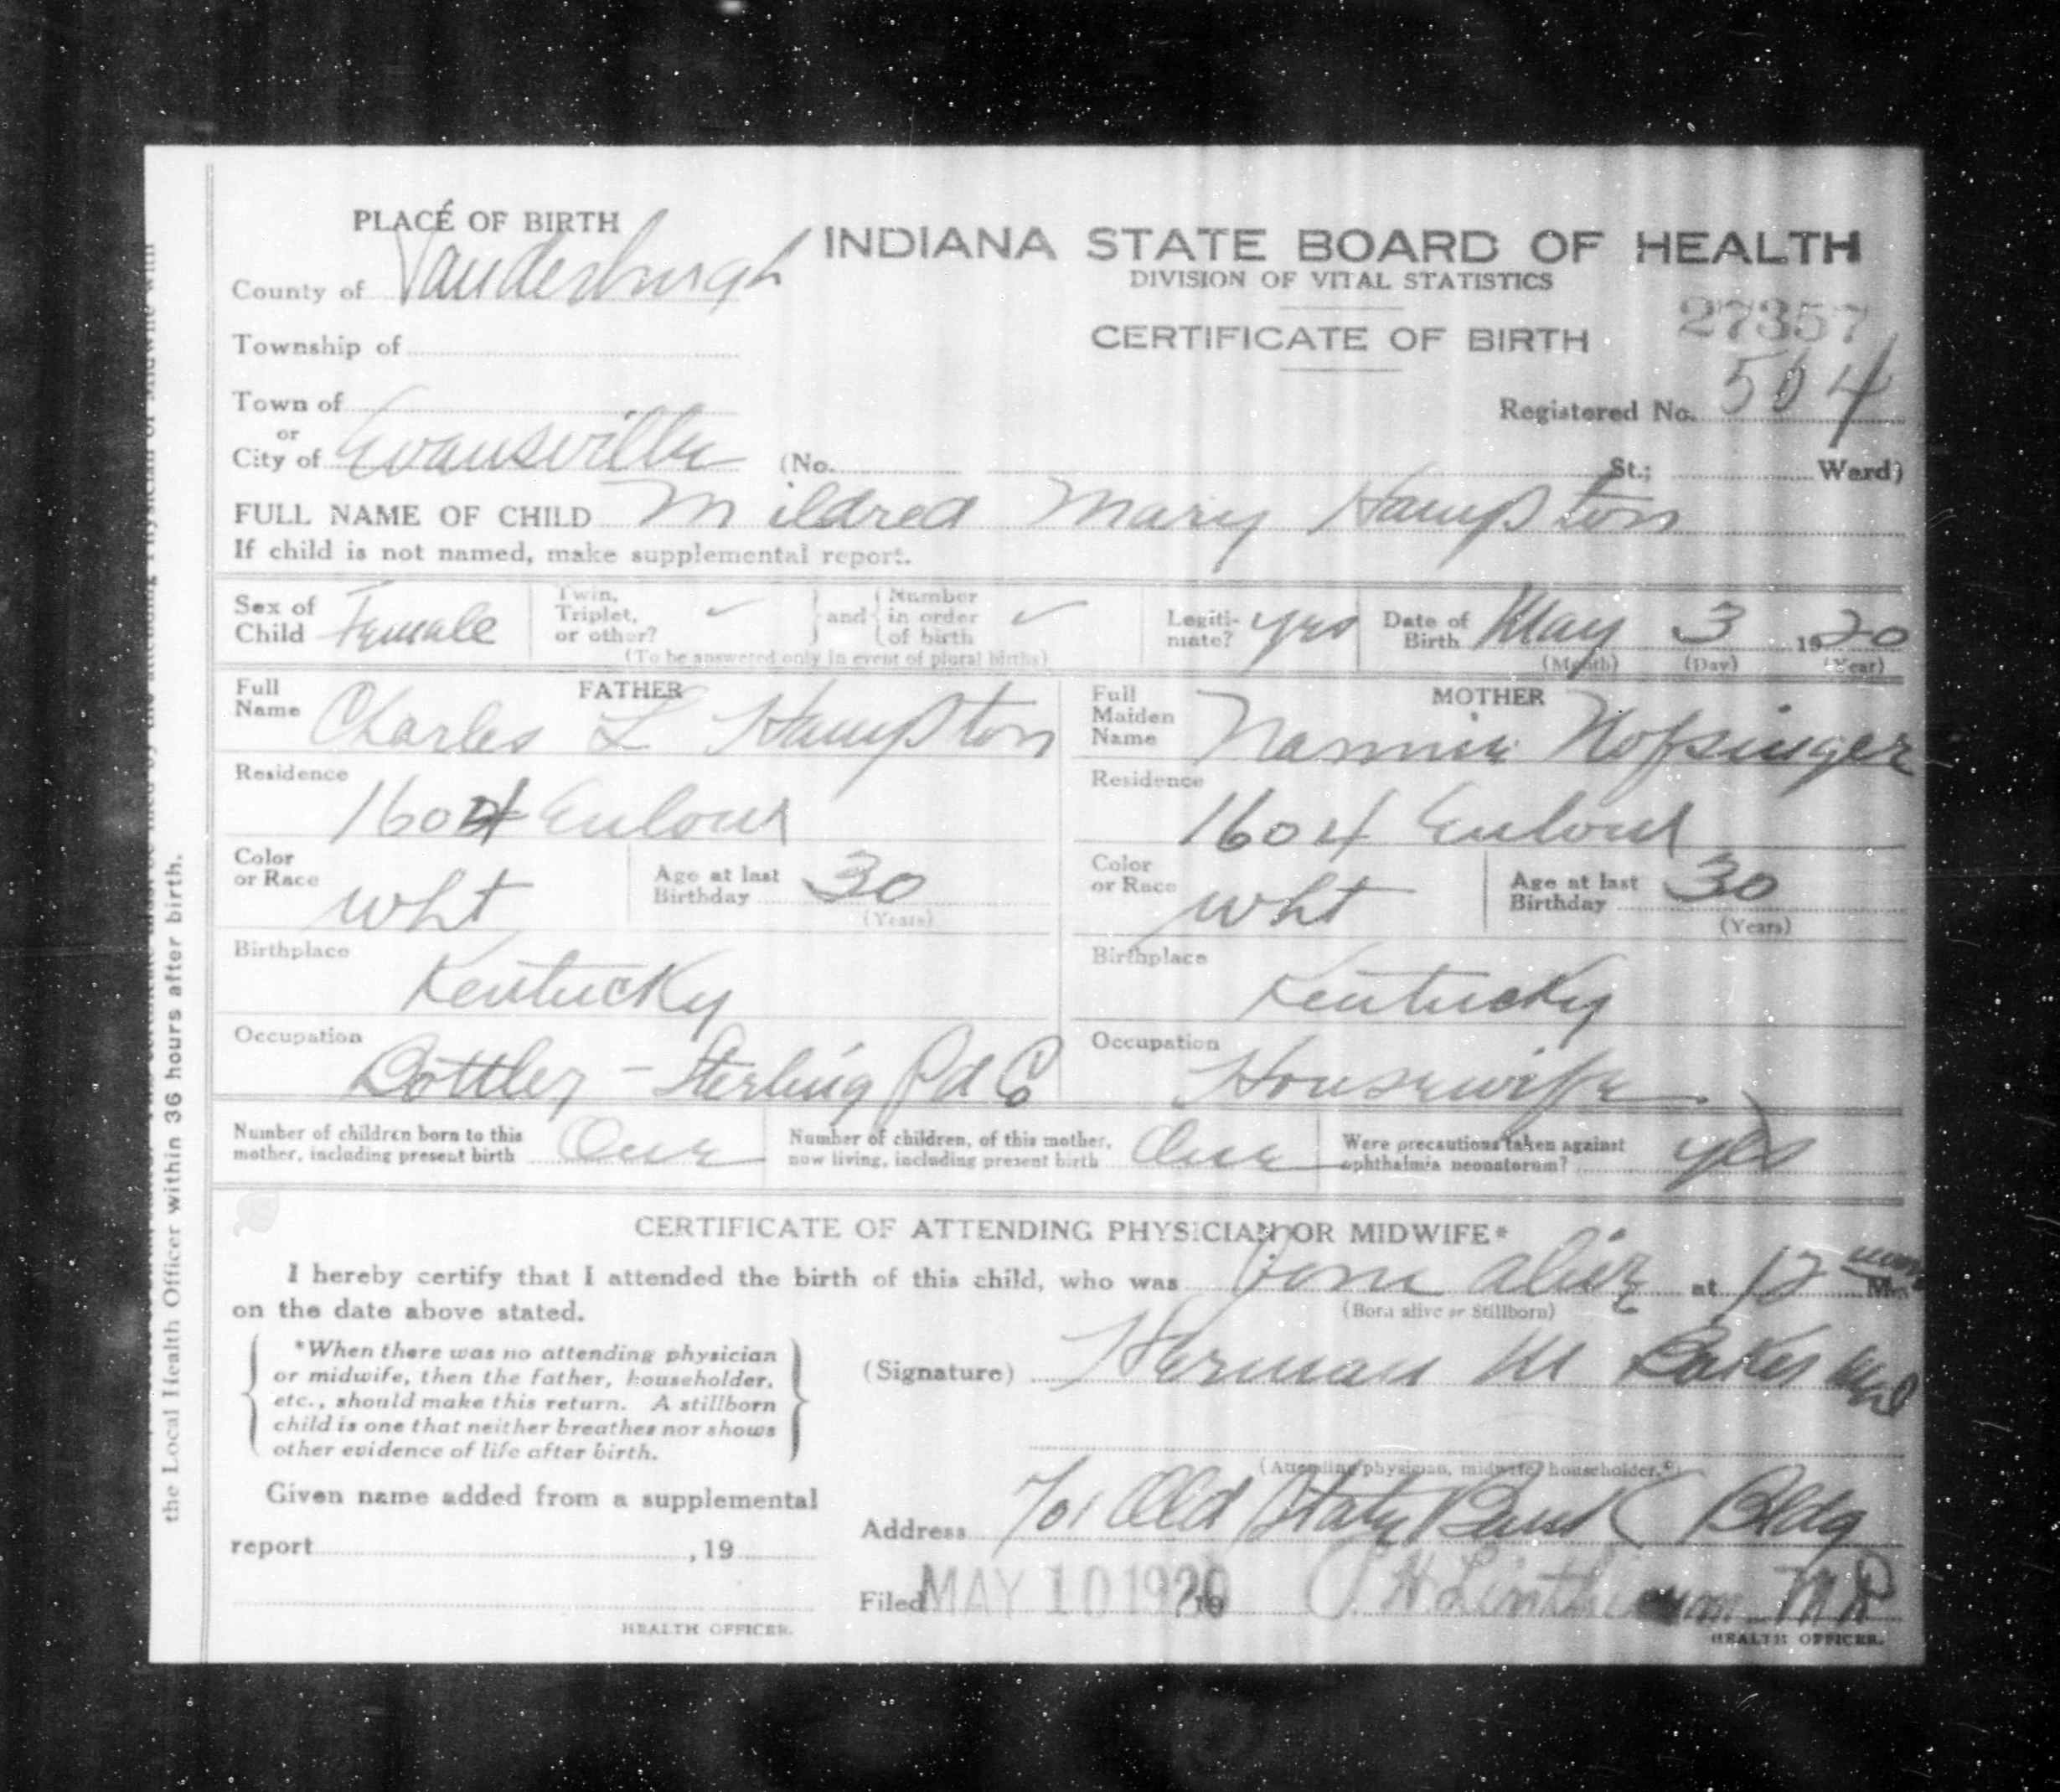 PLACE OF BIRTH
INDIANA STATE BOARD OF HEALTH
County of Vanderburgh
DIVISION OF VITAL STATISTICS
27357
Township of
CERTIFICATE OF BIRTH
Town of
Registered No. 504
or
City of Evansville (No. St.; Ward)
FULL NAME OF CHILD Mildred Mary Hampton
If child is not named, make supplemental report.
Sex of Child Female
Twin, Triplet, or other? ✓ and Number in order of birth ✓
(To be answered only in event of plural births)
Legiti-mate? yes
Date of Birth May 3 1920
(Month) (Day) (Year)
FATHER
Full Name Charles L Hampton
MOTHER
Full Maiden Name Nannie Nofsinger
Residence 1604
Residence 1604
Color or Race wht
Age at last Birthday 30
(Years)
Color or Race wht
Age at last Birthday 30
(Years)
Birthplace Kentucky
Birthplace Kentucky
Occupation Bottler - Sterling Pd Co
Occupation Housewife
Number of children born to this mother, including present birth One
Number of children, of this mother, now living, including present birth One
Were precautions taken against ophthalmia neonatorum? yes
CERTIFICATE OF ATTENDING PHYSICIAN OR MIDWIFE*
I hereby certify that I attended the birth of this child, who was born alive at 12 noon M.
on the date above stated.
(Born alive or Stillborn)
*When there was no attending physician
or midwife, then the father, householder,
etc., should make this return. A stillborn
child is one that neither breathes nor shows
other evidence of life after birth.
(Signature) Herman M Baker MD
(Attending physician, midwife, householder.*)
Given name added from a supplemental
report , 19
Address 701 Old State Bank Bldg
Filed MAY 10 1920 19 J. H. Linthicum M D
HEALTH OFFICER.
HEALTH OFFICER.
the Local Health Officer within 36 hours after birth.